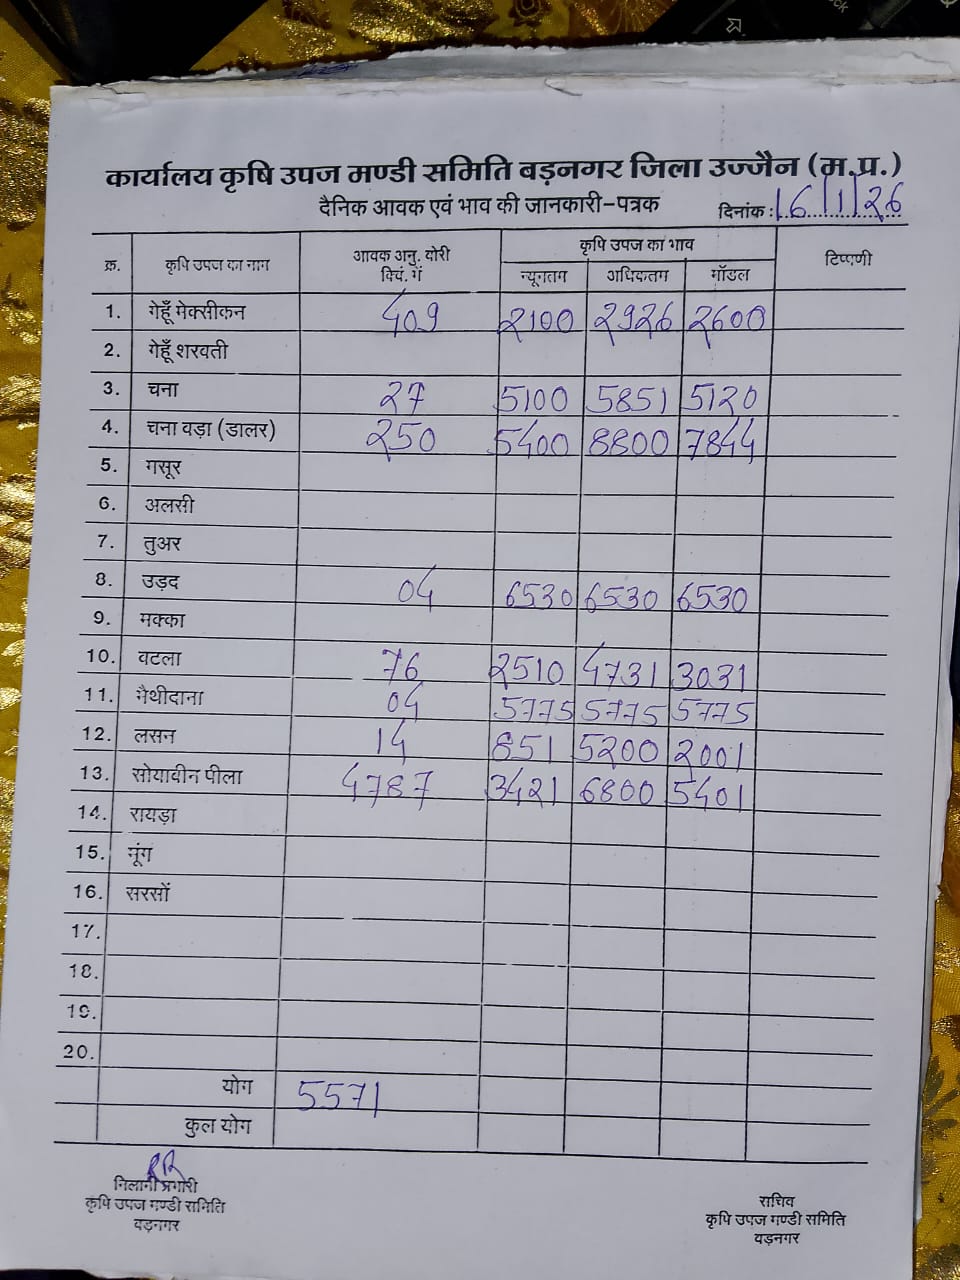 कार्यालय कृषि उपज मण्डी समिति बड़नगर जिला उज्जैन (म.प्र.)
दैनिक आवक एवं भाव की जानकारी-पत्रक दिनांक : 16/1/26
क्र. कृषि उपज का नाम आवक अनु. बोरी क्विं. में कृषि उपज का भाव टिप्पणी
न्यूनतम अधिकतम मॉडल
1. गेहूँ मेक्सीकन 409 2100 2926 2600
2. गेहूँ शरवती
3. चना 27 5100 5851 5120
4. चना वड़ा (डालर) 250 5400 8800 7844
5. मसूर
6. अलसी
7. तुअर
8. उड़द 04 6530 6530 6530
9. मक्का
10. वटला 76 2510 4731 3031
11. मैथीदाना 04 5775 5775 5775
12. लसन 14 851 5200 2001
13. सोयावीन पीला 4787 3421 6800 5401
14. रायड़ा
15. मूंग
16. सरसों
17.
18.
19.
20.
योग 5571
कुल योग
निलामी प्रभारी
कृषि उपज मण्डी समिति
वड़नगर
सचिव
कृषि उपज मण्डी समिति
वड़नगर